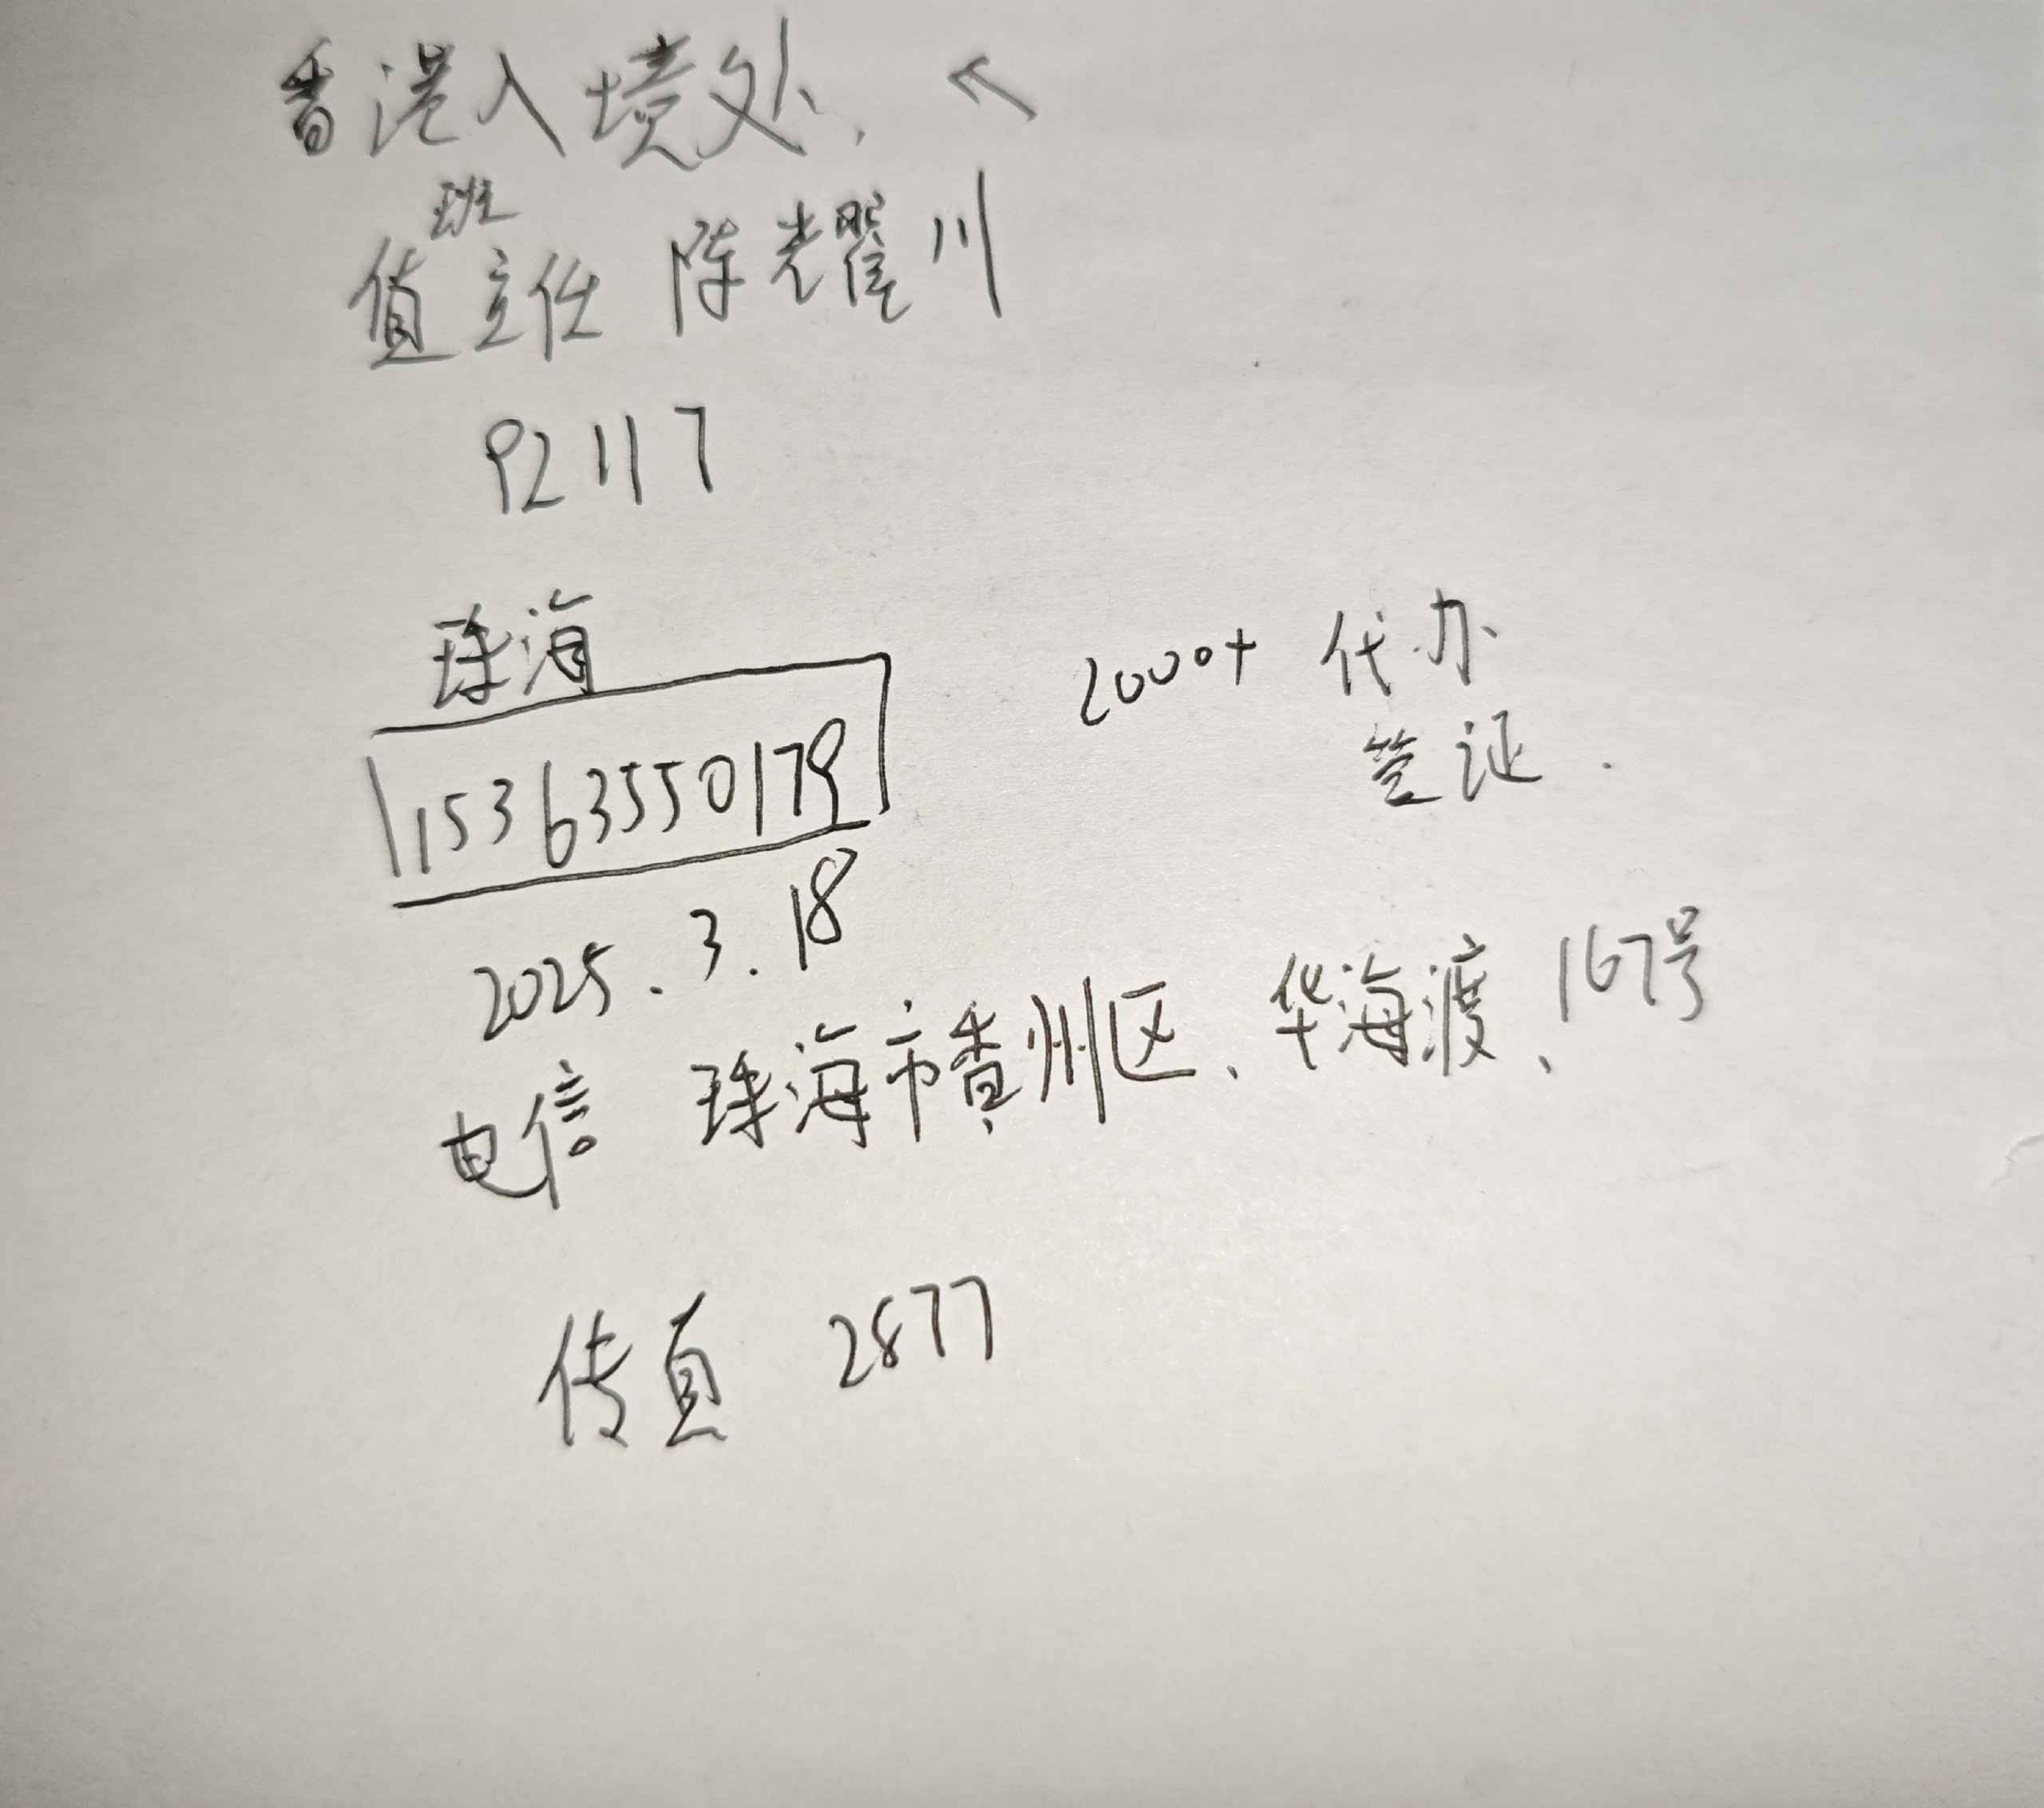 香港入境处、
值班主任 陈耀川
92117
珠海
15363550179
2000+ 代办
签证.
2025.3.18
电信 珠海市香州区、华海渡、167号
传真 2877